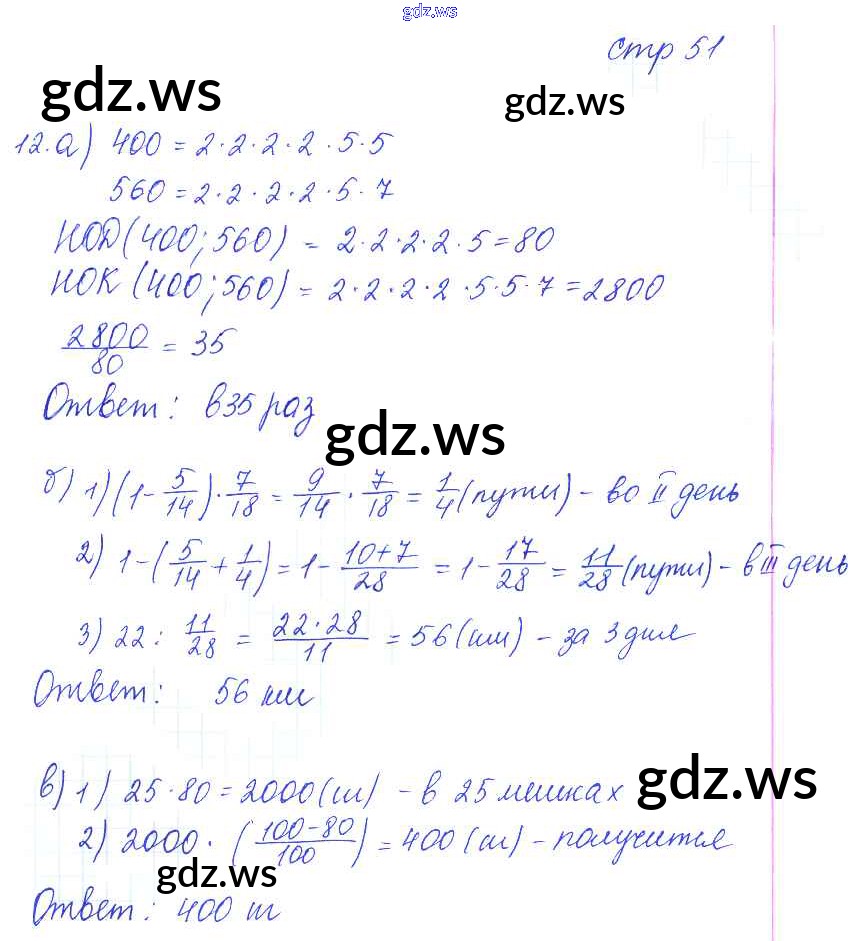 gdz.ws
стр 51
gdz.ws
gdz.ws
12.а) 400 = 2·2·2·2·5·5
560 = 2·2·2·2·5·7
НОД(400;560) = 2·2·2·2·5=80
НОК(400;560) = 2·2·2·2·5·5·7=2800
2800/80 = 35
Ответ: в 35 раз
gdz.ws
б) 1) (1-5/14)·7/18 = 9/14·7/18 = 1/4 (пути) - во II день
2) 1-(5/14+1/4) = 1-10+7/28 = 1-17/28 = 11/28 (пути) - в III день
3) 22: 11/28 = 22·28/11 = 56 (км) - за 3 дня
Ответ: 56 км
gdz.ws
в) 1) 25·80=2000(ш) - в 25 мешках
2) 2000·(100-80/100) = 400 (ш) - получится
gdz.ws
Ответ: 400 ш